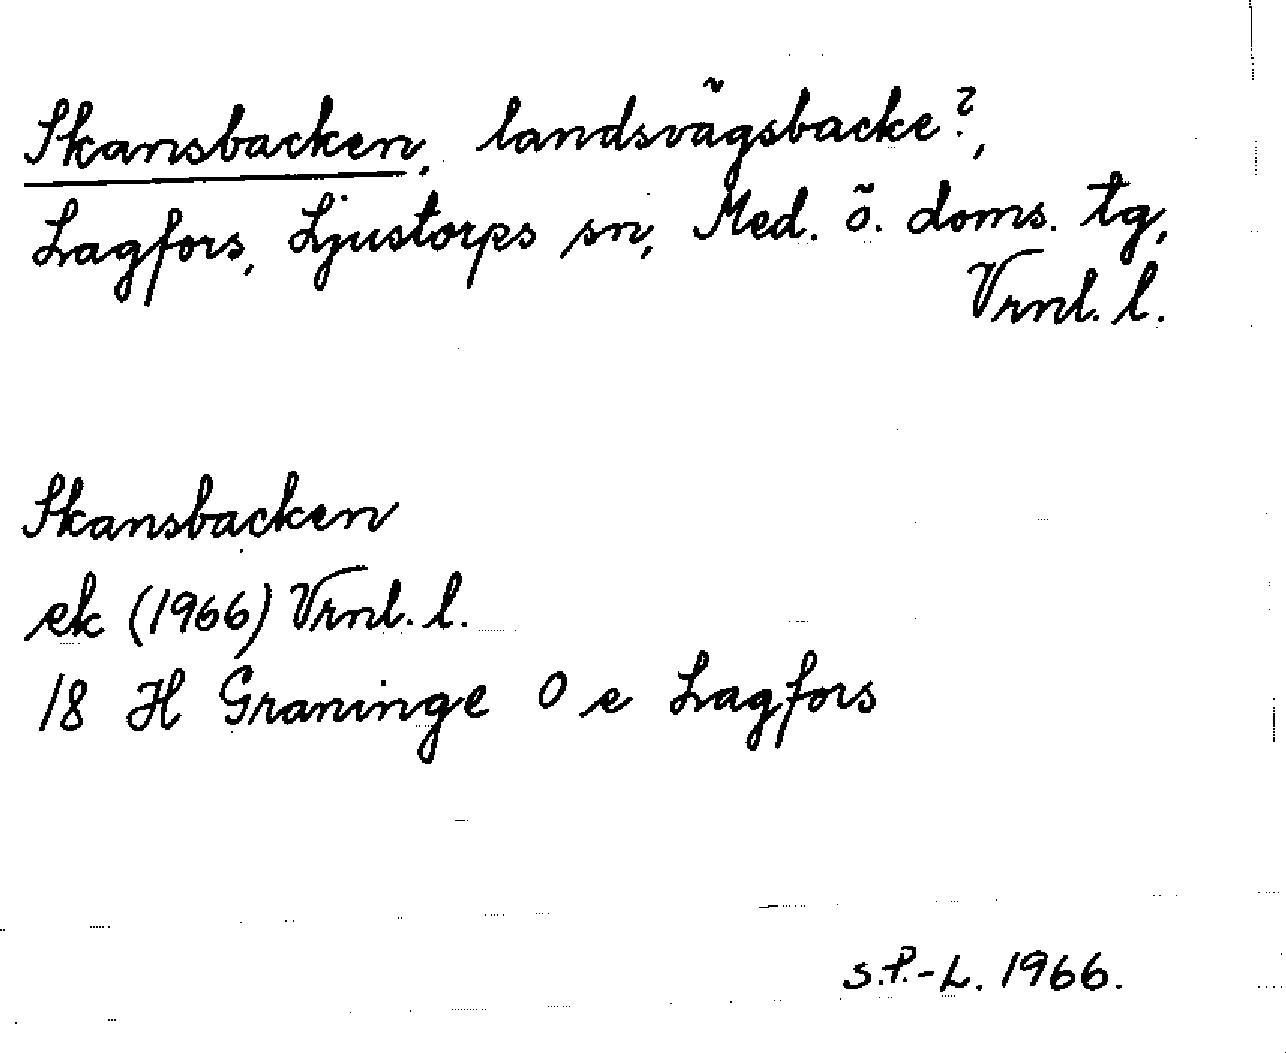 Skansbacken, landsvägsbacke?,
Lagfors, Ljustorps sn, Med. ö. doms. tg,
Vrnl. l.
Skansbacken
ek (1966) Vrnl. l.
18 H Graninge 0 e Lagfors
S.P.-L. 1966.